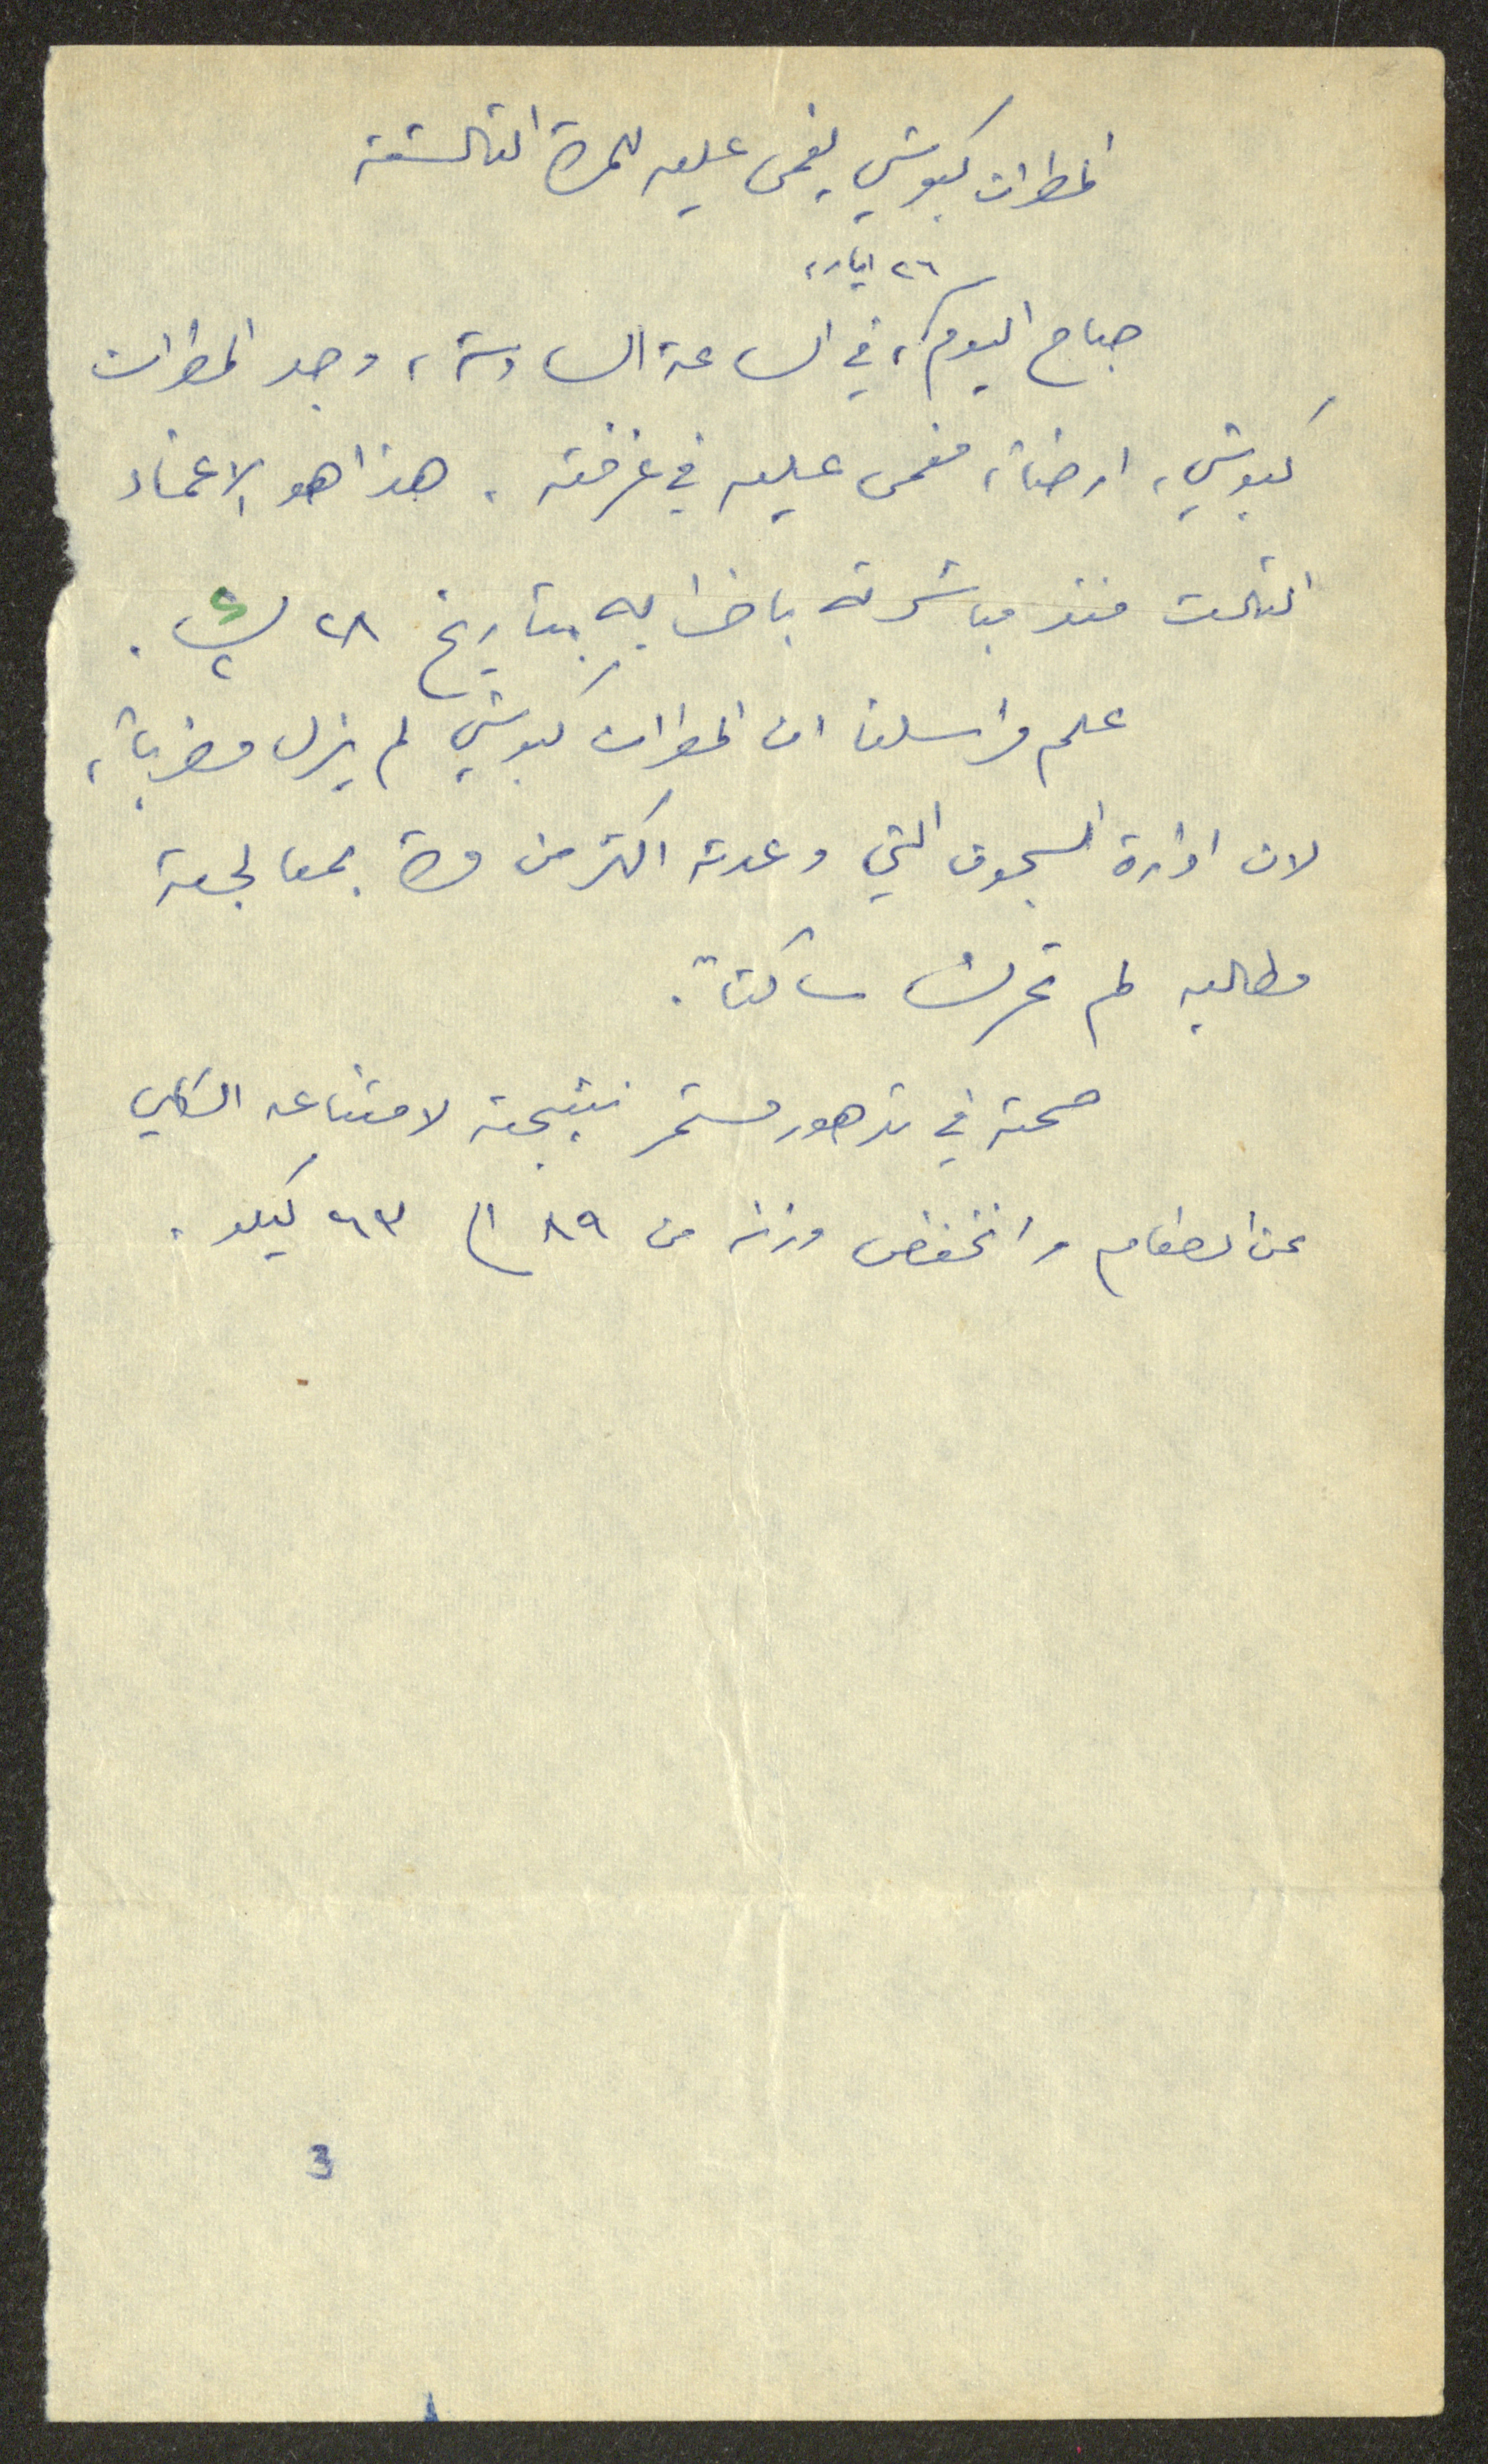 المطران كبوشي يغمى عليه للمرة الثالثة
٢٦ ايار،
صباح اليوم، في الساعة السادسة، وجد المطران
كبوشي، ارضاً، مغمى عليه في غرفته. هذا هو الاغماء
الثالث منذ مباشرته باضرابه بتاريخ ٢٨ ك٢.
علم مراسلنا ان المطران كبوشي لم يزل مضرباً،
لان ادارة السجون التي وعدته اكثر من مرة بمعالجة
مطالبه لم تحرك ساكناً.
صحته في تدهور مستمر نتيجة لامتناعه الكلي
عن الطعام وانخفض وزنه من ٨٩ الى ٦٣ كيلو.
3